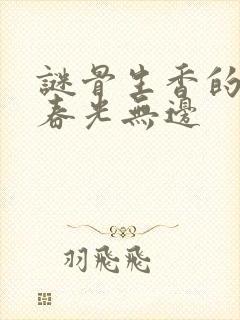 謎骨生香的
春光無邊
羽飛飛